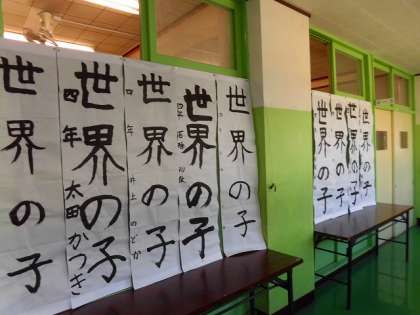 世界の子
世界の子
四年 太田かつき
世界の子
四年 井上のどか
世界の子
四年
世界の子
世界の子
世界の子
世界の子
世界の子